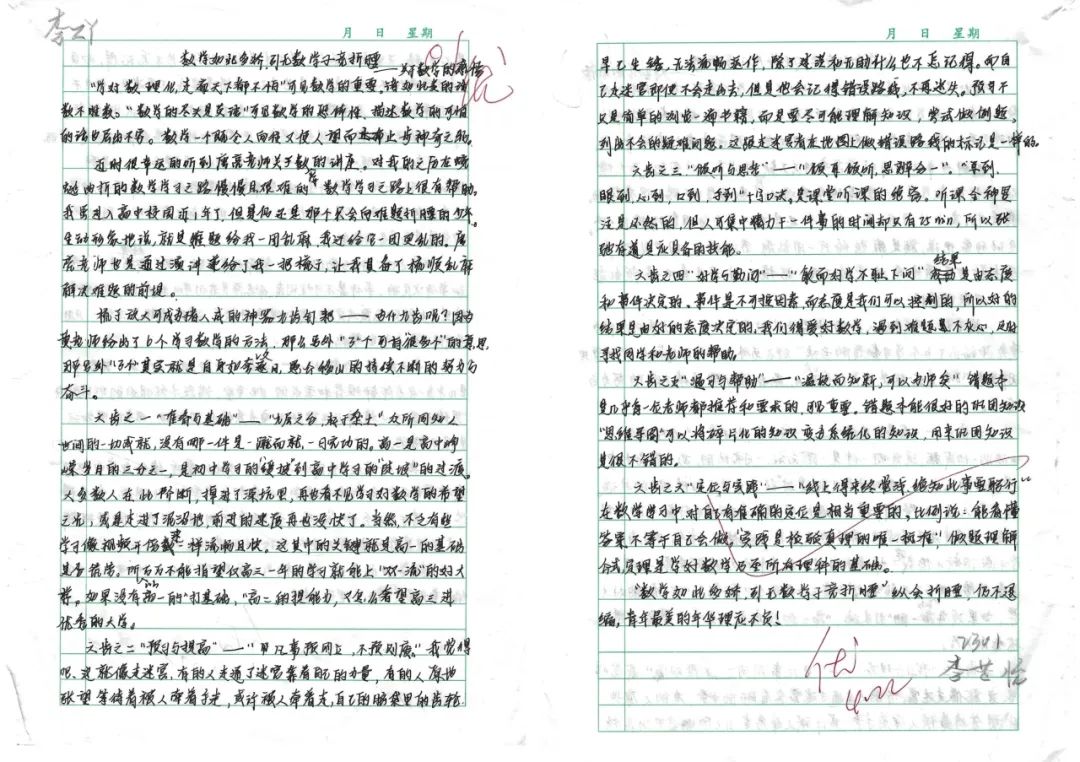 李
月 日 星期
数学如此多娇,引无数学子竞折腰
——对数学的
优
"学好数理化,走遍天下都不怕"可见数学的重要,诸如此类的话
数不胜数。"数学的尽头是英语"可见数学的恐怖性,描述数学的可怕
的话也层出不穷。数学一个随令人向往又使人望而止步神奇之物。
近时很幸运的听到唐亮老师关于数的讲座。对我的之后在崎
岖曲折的数学学习之路慢慢且很难的数学学习之路上很有帮助。
我虽进入高中校园近1年了,但是仍还是那个只会向难题折腰的少年。
生动形象地说,就是难题给我一团乱麻,我还给它一团更乱的。唐
亮老师也是通过演讲递给了我一把梳子,让我具备了梳顺乱麻
解决难题的前提。
梳子放大可成为猪八戒的神器九齿钉耙——为什九齿呢?因为
黄老师给出了6个学习数学的方法,那么另外"3"个
那另外"3个"其实就是自身如
奋斗。
大齿之一"准备与基础"——"九层之台,起于垒土"众所周知人
世间的一切成就,没有哪一件是一蹴而就一日完功的。高一是高中峥
嵘岁月的三分之一,是初中学习的"缓坡"到高中学习的"陡坡"的过渡
大多数人在此阶断,掉进了深坑里,再也看不见学习好数学的希望
之光,或是走进了沼泽地,前进的速度再也没快了。当然,不乏有些
学习像视频开倍速一样流畅且快,这其中的关键就是高一的基础
是否落实。所以万不能指望仅高三一年的学习就能上"双一流"的好大
学。如果没有高一的"打基础,"高二的提能力,又怎么希望高三进
优秀的大学。
大齿之二"预习与提高"——"凡事预则立,不预则废"我觉得
呢,这就像走迷宫,有的人走通了迷宫靠着自己的力量,有的人原地
张望等待着被人牵着手走,或许被人牵着走,自己的脑袋里的齿轮
月 日 星期
早已生锈,无法流畅运作,除了迷茫和无助什么也不忘记得。而自
己走迷宫即使不会走出去,但是也会记得错误路线,不再迷失。预习不
只是简单的浏览一遍书籍,而是要尽可能理解知识,尝试做例题,
列出不会的疑难问题。这跟走迷宫者在地图上做错误路线的标记是一样的。
大齿之三"倾听与思考"——"倾耳倾听,思辨分一"。"耳到,
眼到,心到,口到,手到"十字口决。是课堂听课的绝密。听课全神贯
注是必然的,但人可集中精力于一件事的时间却只有25min,所以张
弛有道是应具备的技能。
大齿之四"好学与勤问"——"敏而好学不耻下问"结果是由态度
和事件决定的。事件是不可控因素,而态度是我们可以控制的,所以好的
结果是由好的态度决定的,我们得要好数学,遇到难题是不灰心,及时
寻找同学和老师的帮助。
大齿之五"温习与帮助"——"温故而知新,可以为师矣"错题本
是几乎每一位老师都推荐和要求的,很重要。错题本能很好的巩固知识
"思维导图"可以将碎片化的知识变为系统化的知识,用来巩固知识
是很不错的。
大齿之六"定位与实践"——"纸上得来终觉浅,绝知此事要躬行"
在数学学习中,对自己有准确的定位是相当重要的。比例说:能看懂
答案不等于自己会做。"实践是检验真理的唯一标准,"做题理解
公式定理是学好数学乃至所有理科的基础。
"数学如此多娇,引无数学子竞折腰"纵会折腰,仍不退
缩,青年最美的年华理应不负!
2341
优
4.22
李芝怡